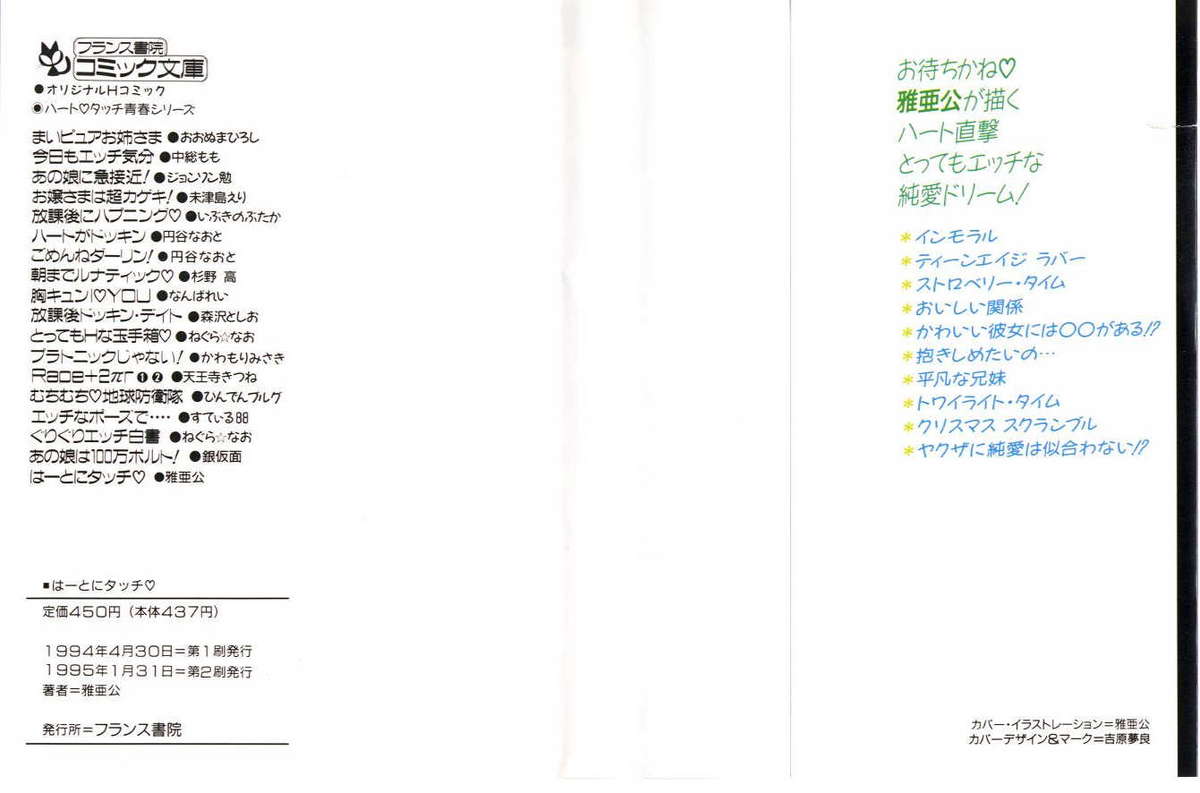 フランス書院
コミック文庫
●オリジナルHコミック
◉ハート♡タッチ青春シリーズ
まいピュアお姉さま ●おおぬまひろし
今日もエッチ気分 ●中総もも
あの娘に急接近! ●ジョンソン勉
お嬢さまは超カゲキ! ●未津島えり
放課後にハプニング♡ ●いぶきのぶたか
ハートがドッキン ●円谷なおと
ごめんねダーリン! ●円谷なおと
朝までルナティック♡ ●杉野 高
胸キュン!♡YOU ●なんばれい
放課後ドッキン・デイト ●森沢としお
とってもHな玉手箱♡ ●ねぐら☆なお
プラトニックじゃない! ●かわもりみさき
Rape+2πr❶❷ ●天王寺きつね
むちむち♡地球防衛隊 ●ひんでんブルグ
エッチなポーズで‥‥ ●すてぃる88
ぐりぐりエッチ白書 ●ねぐら☆なお
あの娘は100万ボルト! ●銀仮面
はーとにタッチ♡ ●雅亜公
■はーとにタッチ♡
定価450円(本体437円)
1994年4月30日=第1刷発行
1995年1月31日=第2刷発行
著者=雅亜公
発行所=フランス書院
お待ちかね♡
雅亜公が描く
ハート直撃
とってもエッチな
純愛ドリーム!
*インモラル
*ティーンエイジ ラバー
*ストロベリー・タイム
*おいしい関係
*かわいい彼女には〇〇がある!?
*抱きしめたいの…
*平凡な兄妹
*トワイライト・タイム
*クリスマス スクランブル
*ヤクザに純愛は似合わない!?
カバー・イラストレーション=雅亜公
カバーデザイン&マーク=吉原夢良